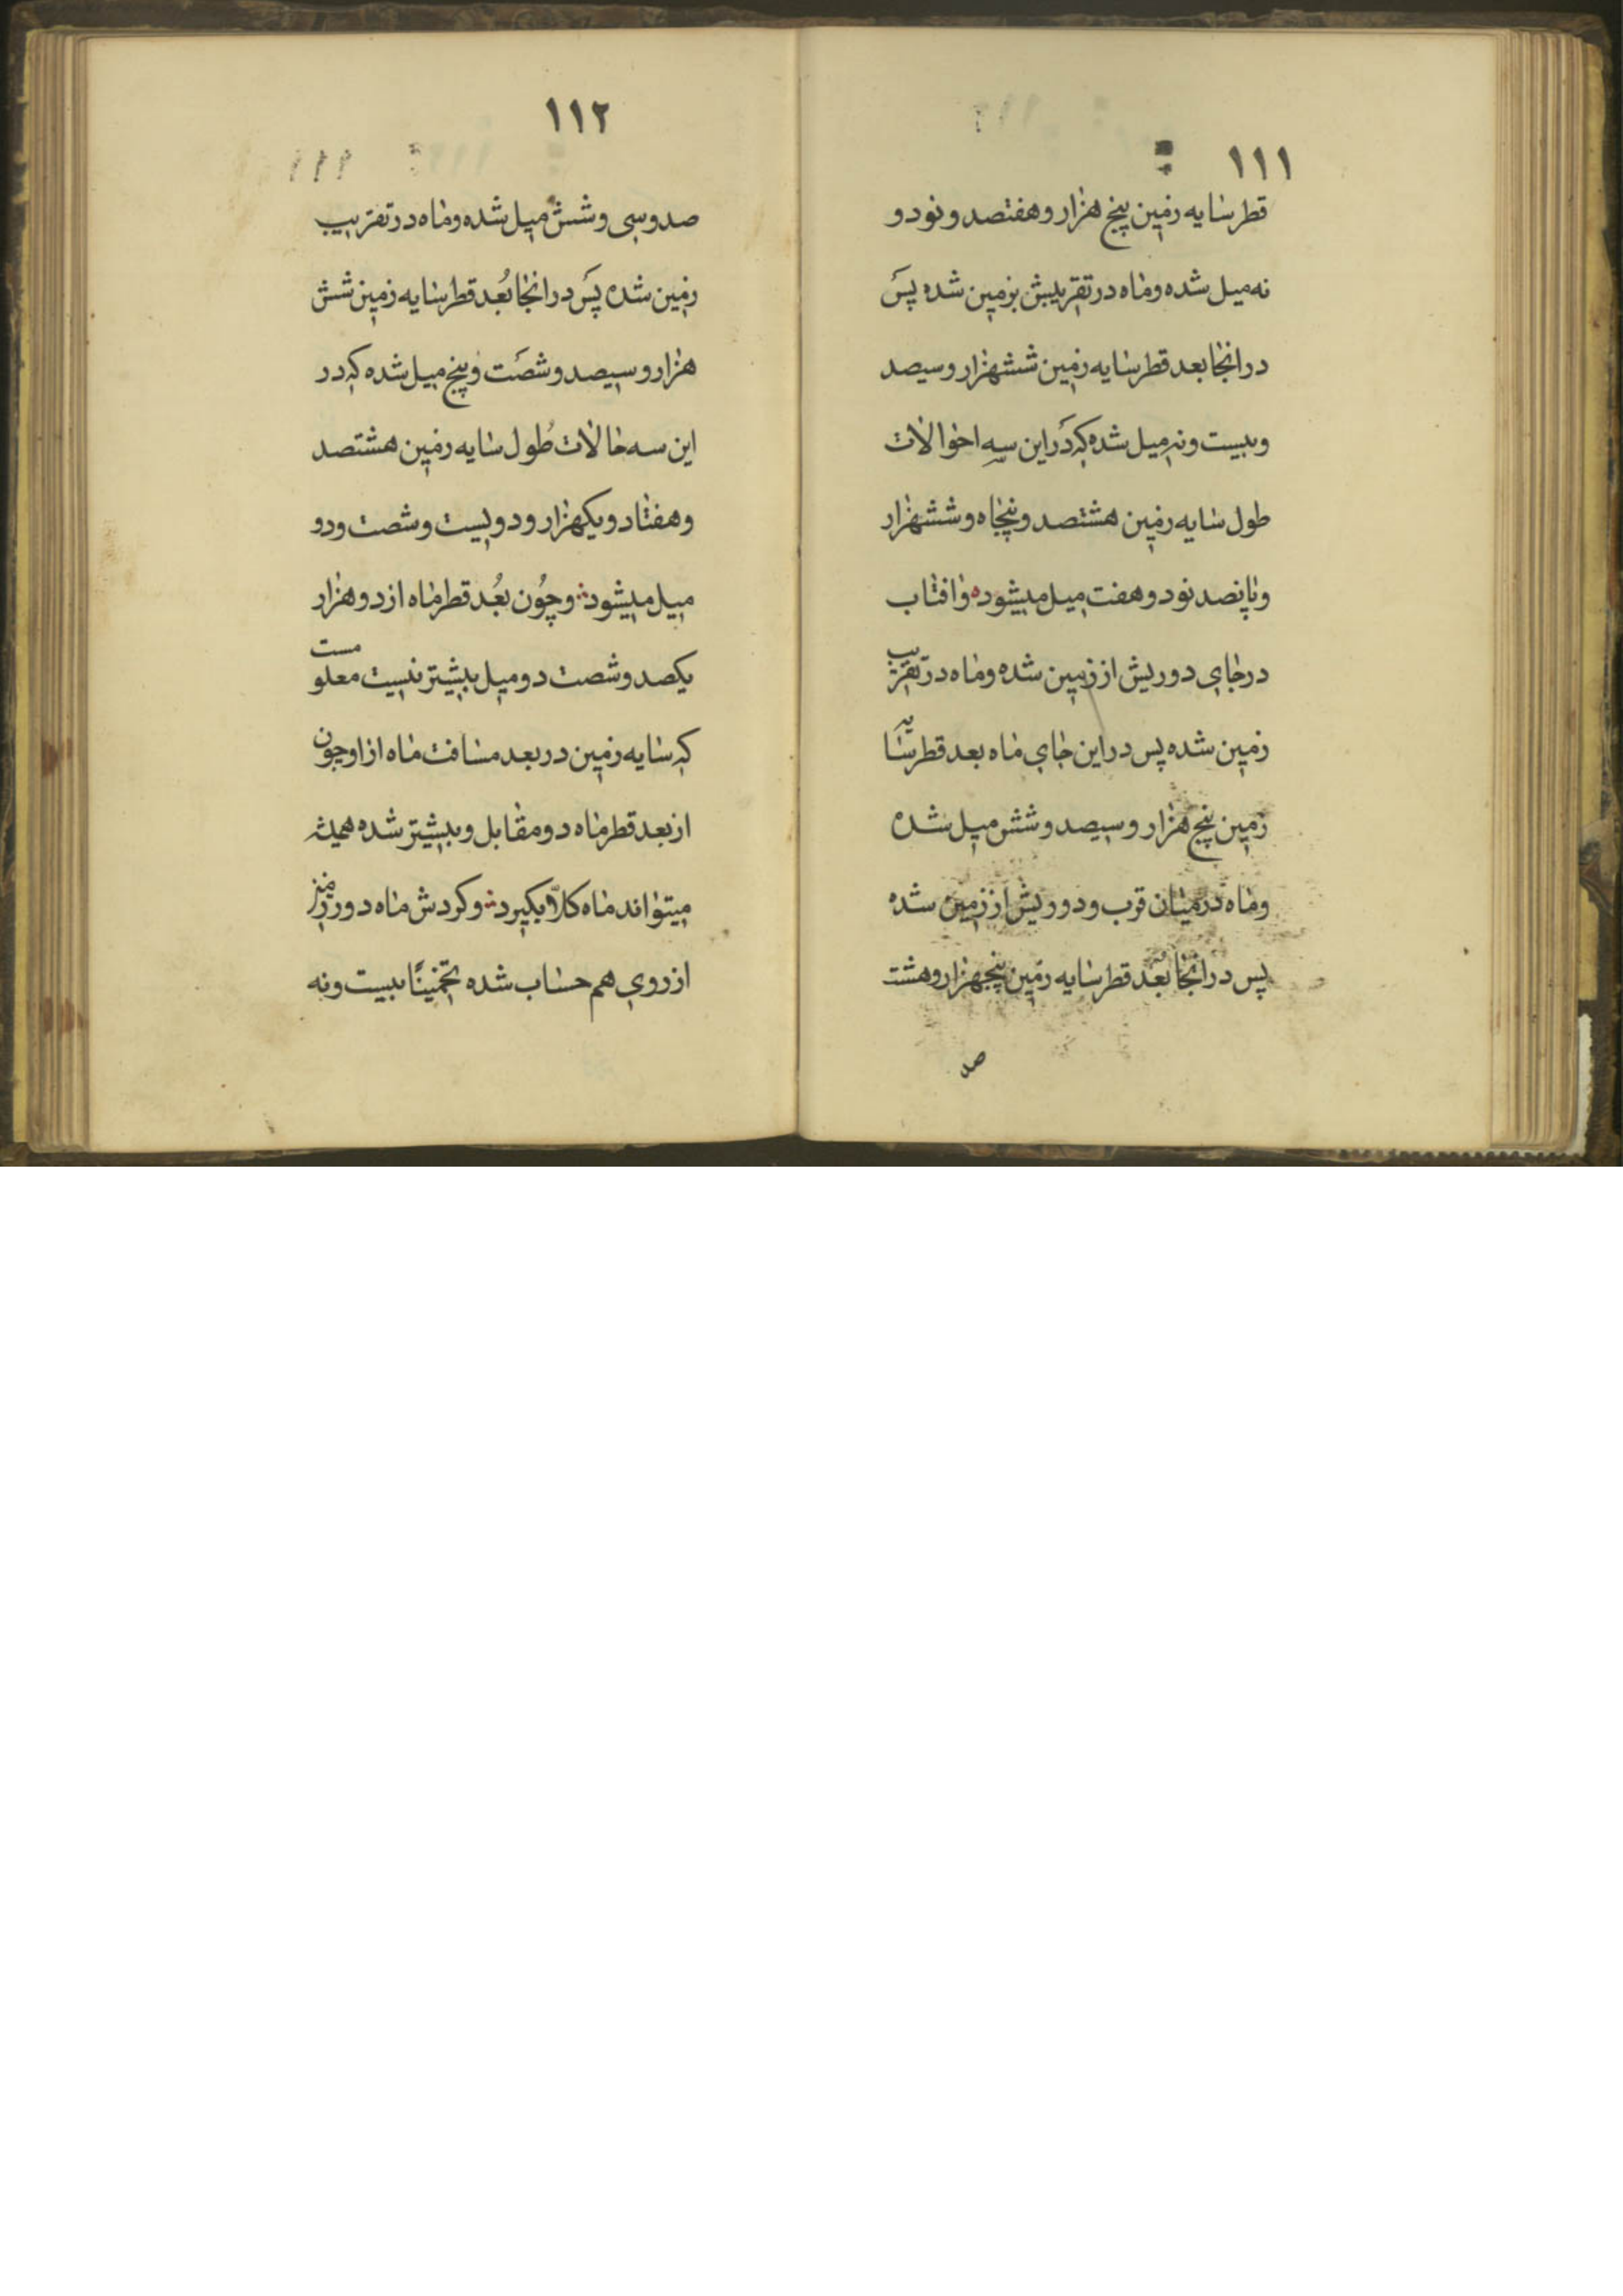 ۱۱۱
قطر سایه زمین پنج هزار و هفتصد و نود و
نه میل شده و ماه در تقریبش بزمین شده پس
در انجا بعد قطر سایه زمین ششهزار و سیصد
و بیست و نه میل شده که در این سه احوالات
طول سایه زمین هشتصد و پنجاه و ششهزار
و پانصد نود و هفت میل میشود و افتاب
در جای دوریش از زمین شده و ماه در تقریب
زمین شده پس در این جای ماه بعد قطر سایه
زمین پنج هزار و سیصد و شش میل شده
و ماه در میان قرب و دوریش از زمین شده
پس در انجا بُعد قطر سایه زمین پنجهزار و هشت
صد
۱۱۲
صد و سی و شش میل شده و ماه در تقریب
زمین شده پس در انجا بُعد قطر سایه زمین شش
هزار و سیصد و شصت و پنج میل شده که در
این سه حالات طُول سایه زمین هشتصد
و هفتاد و یکهزار و دویست و شصت و دو
میل میشود و چُون بُعد قطر ماه از دو هزار
یکصد و شصت دو میل بیشتر نیست معلومست
که سایه زمین در بعد مسافت ماه از او چون
از بعد قطر ماه دو مقابل و بیشتر شده همیشه
میتواند ماه کلّا بگیرد و کردش ماه دور زمین
از روی هم حساب شده تخمیناً بیست و نه